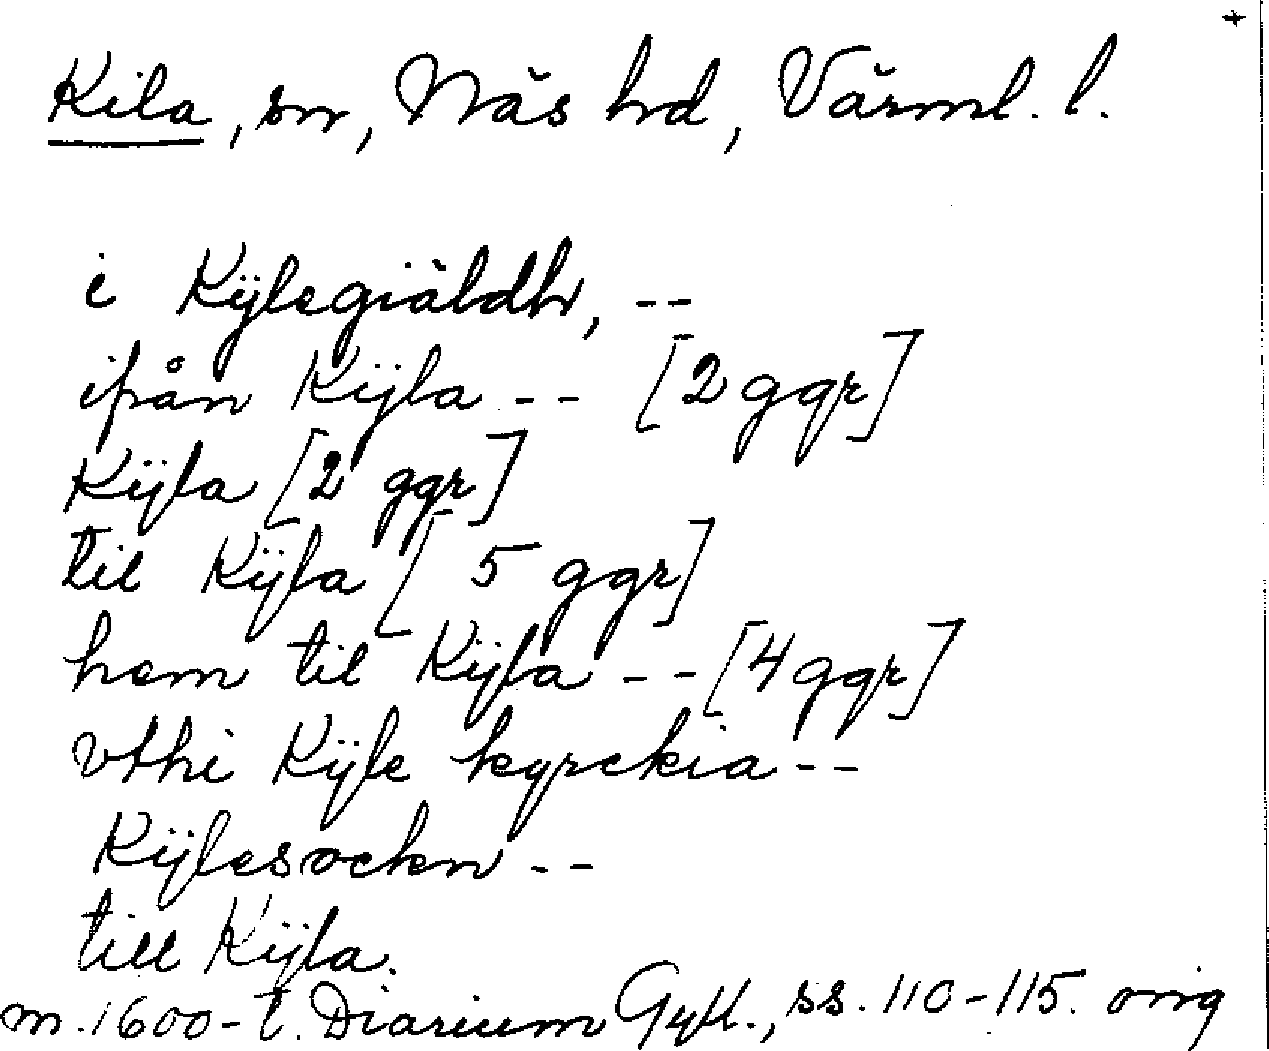 +
Kila, sn, Näs hd, Värml. l.
i Kÿlegiäldh, --
ifrån Kÿla -- [2 ggr]
Kÿla [2 ggr]
til Kÿla [5 ggr]
hem til Kÿla -- [4 ggr]
vthi Kÿle kyrckia --
Kÿlesockn --
till Kÿla.
m. 1600-t. Diarium Gyll., ss. 110-115. orig